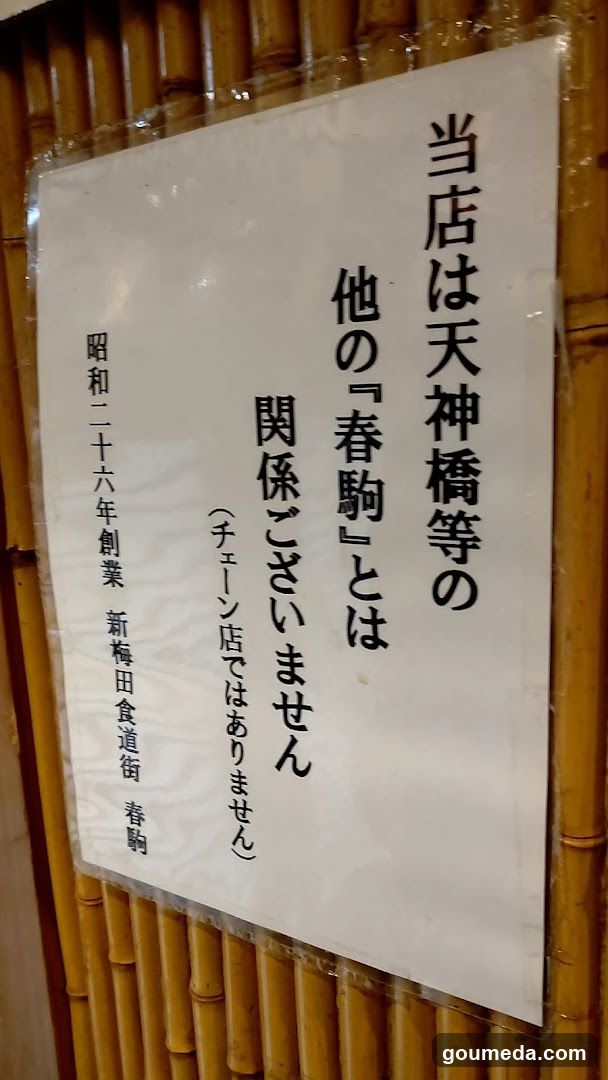 当店は天神橋等の
他の『春駒』とは
関係ございません
（チェーン店ではありません）
昭和二十六年創業　新梅田食道街　春駒
goumeda.com